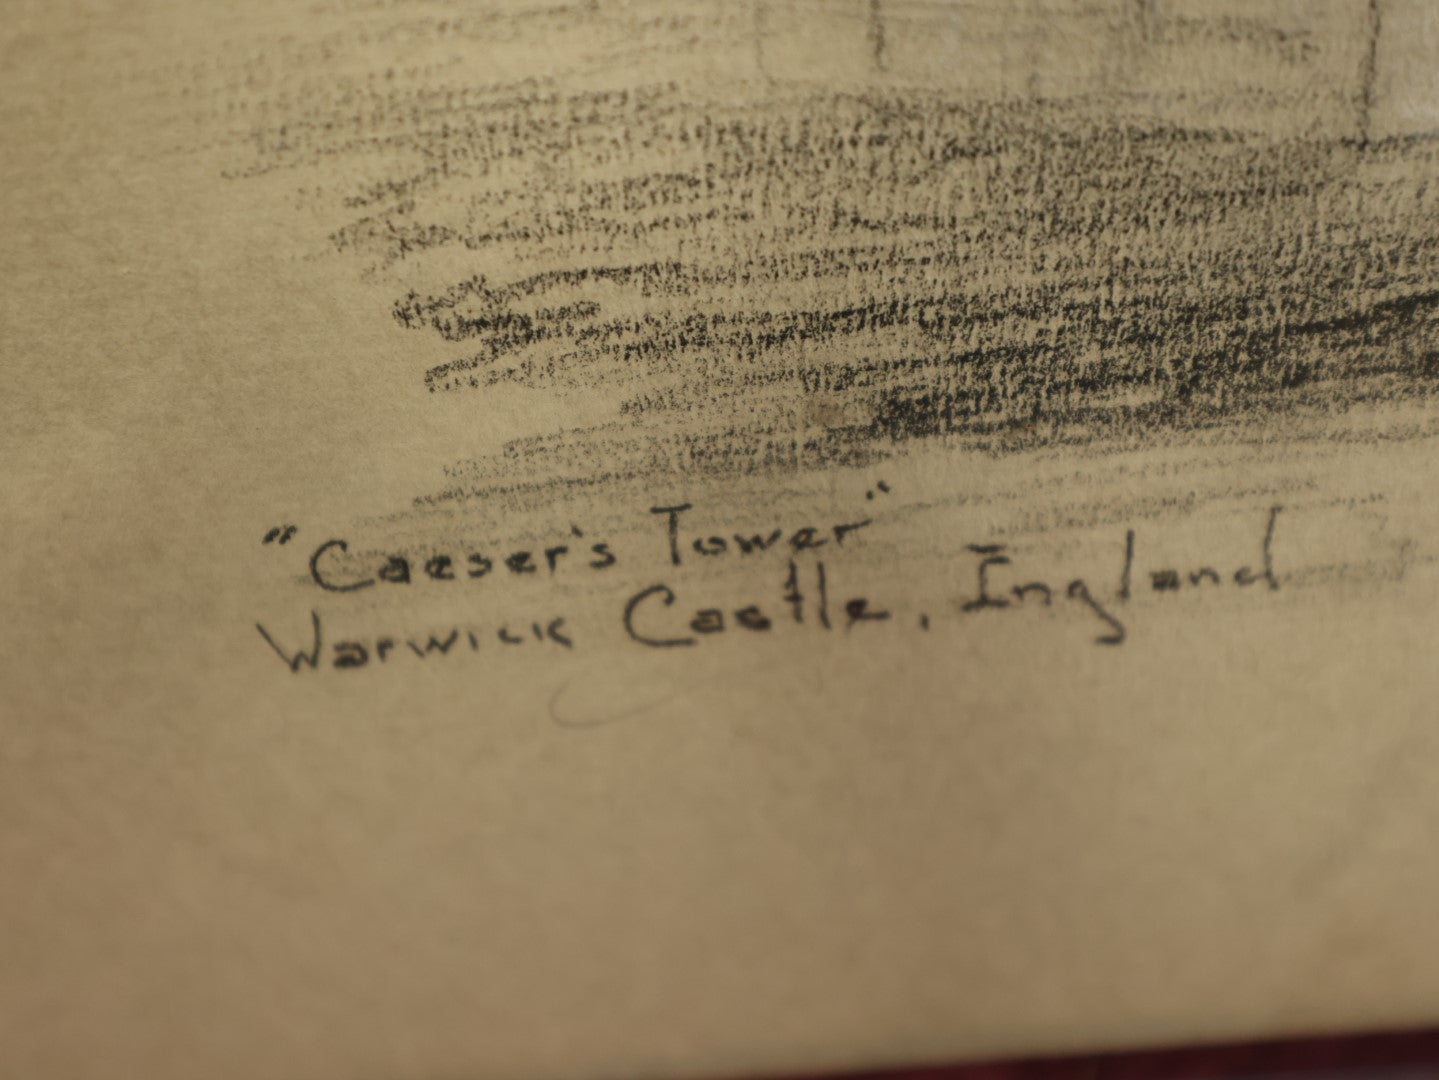 "Caeser's Tower"
Warwick Castle, England